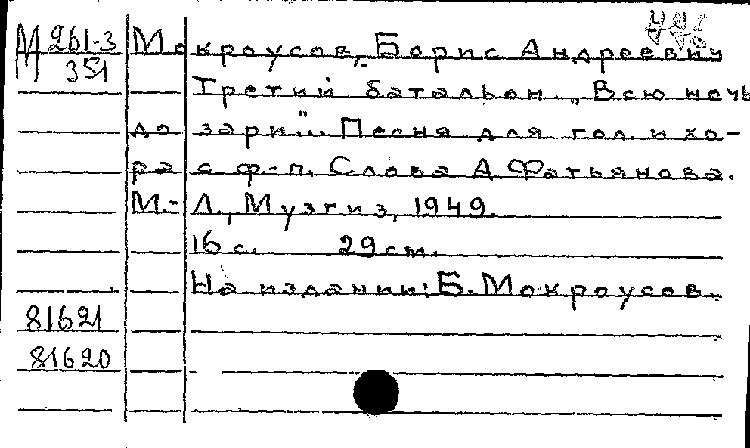 М 261-3
351
Мокроусов, Борис Андреевич
Третий батальон. „Всю ночь
до зари“... Песня для гол. и хо-
ра с ф-п. Слова А. Фатьянова.
М.-Л., Музгиз, 1949.
16 с. 29 см.
На издании: Б. Мокроусов.
81621
81620